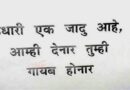 धारी एक जादु आहे,
आम्ही देनार तुम्ही
गायब होनार